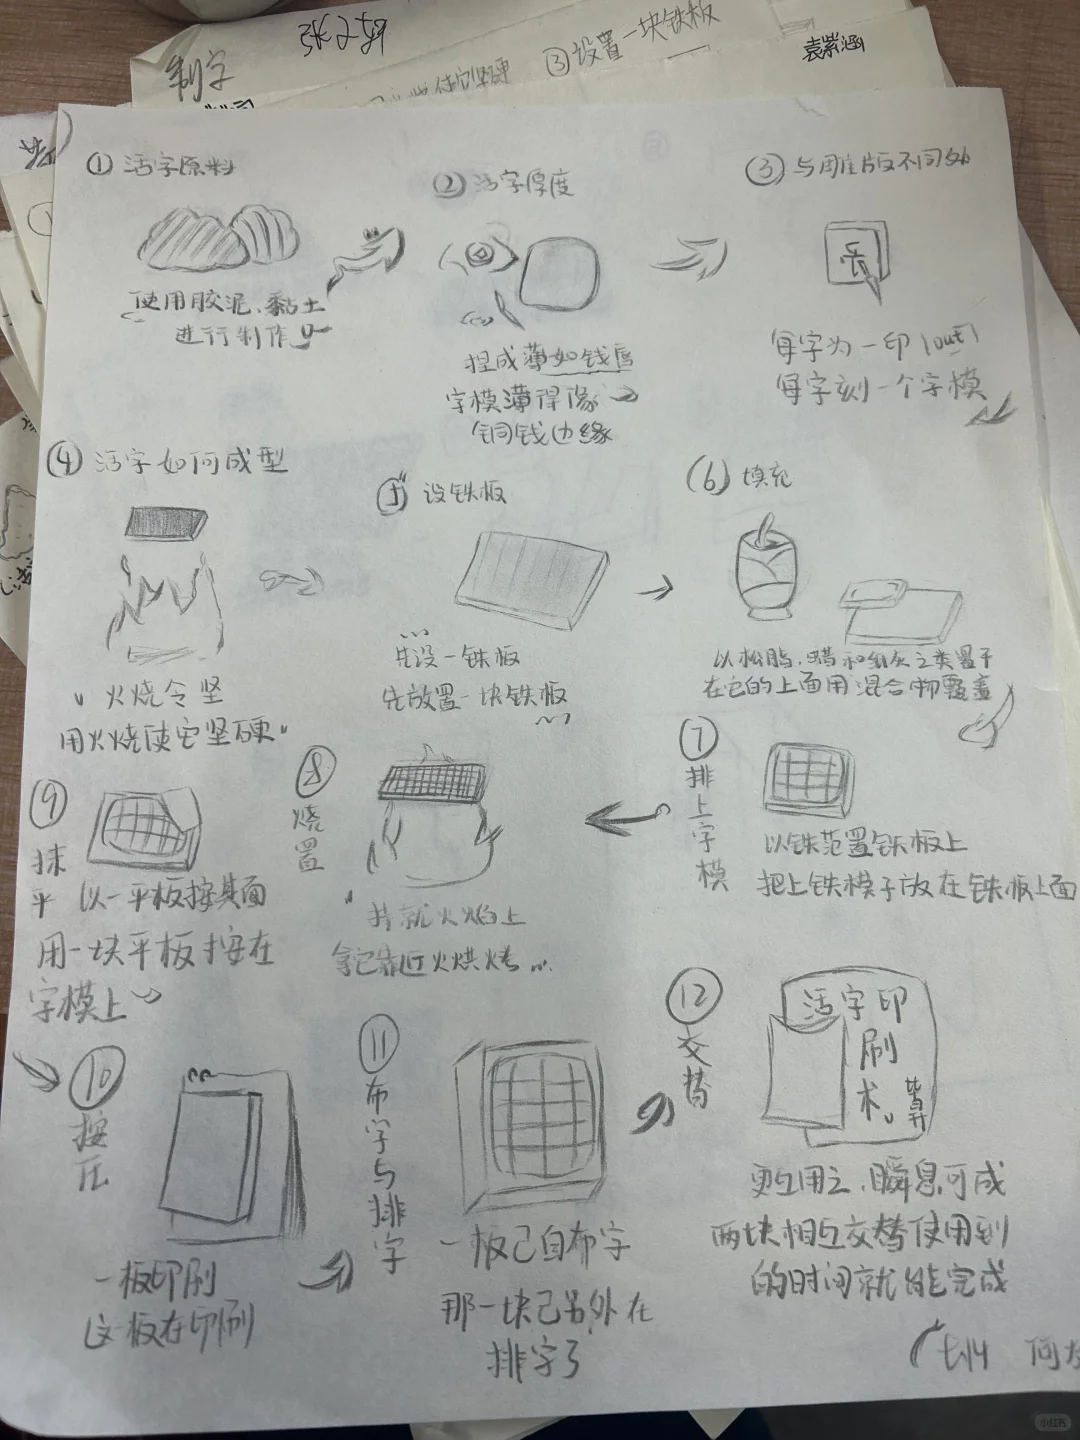 制字
③设置一块铁板
袁紫涵
① 活字原料
使用胶泥、黏土
进行制作
② 活字厚度
捏成薄如钱唇
字模薄得像
铜钱边缘
③ 与雕版不同处
乐
每字为一印(out)
每字刻一个字模
④ 活字如何成型
火烧令坚
用火烧使它坚硬
设铁板
先设一铁板
先放置一块铁板
(6) 填充
以松脂、蜡和纸灰之类置于
在它的上面用混合物覆盖
⑦ 排上字模
以铁范置铁板上
把上铁模子放在铁板上面
⑧ 烧置
持就火炀上
拿它靠近火烘烤
⑨ 抹平
以一平板按其面
用一块平板按在
字模上
⑩ 按压
一板印刷
这一板在印刷
⑪ 布字与排字
一板已自布字
那一块已另外在
排字了
⑫ 交替
活字印
刷
术。
毕昇
更互用之,瞬息可成
两块相互交替使用到
的时间就能完成